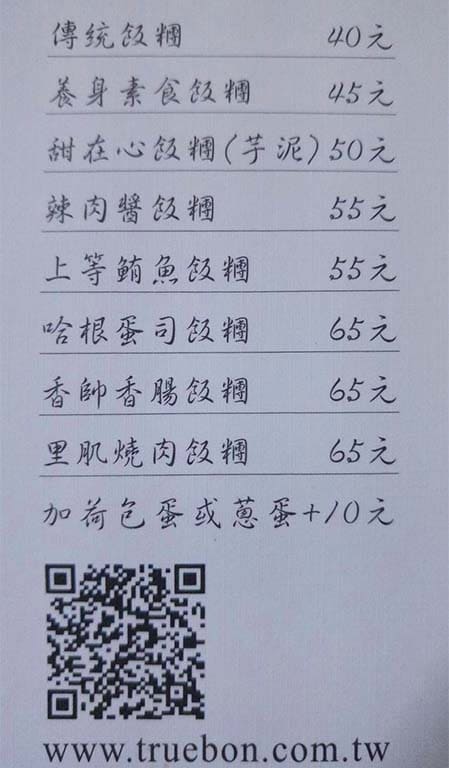 傳統飯糰 40元
養身素食飯糰 45元
甜在心飯糰(芋泥) 50元
辣肉醬飯糰 55元
上等鮪魚飯糰 55元
哈根蛋司飯糰 65元
香帥香腸飯糰 65元
里肌燒肉飯糰 65元
加荷包蛋或蔥蛋+10元
www.truebon.com.tw